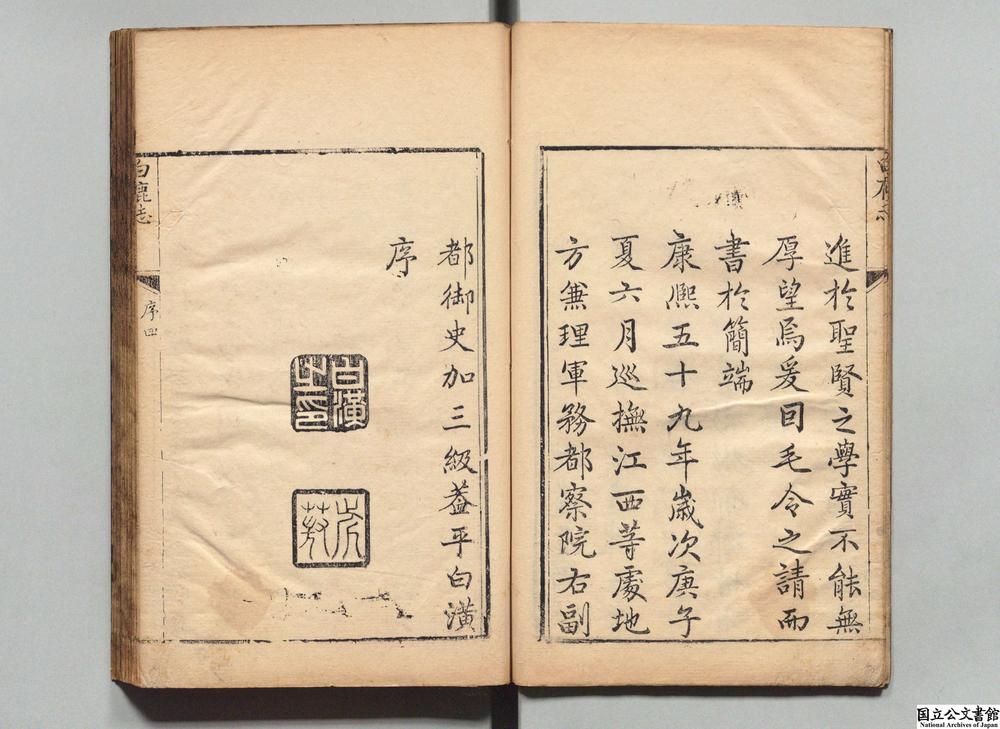 進於聖賢之學實不能無
厚望焉爰囙毛令之請而
書於簡端
康熈五十九年歲次庚子
夏六月巡撫江西等處地
方兼理軍務都察院右副
都御史加三級葢平白潢
序
白潢之印
白鹿志
序四
国立公文書館
National Archives of Japan